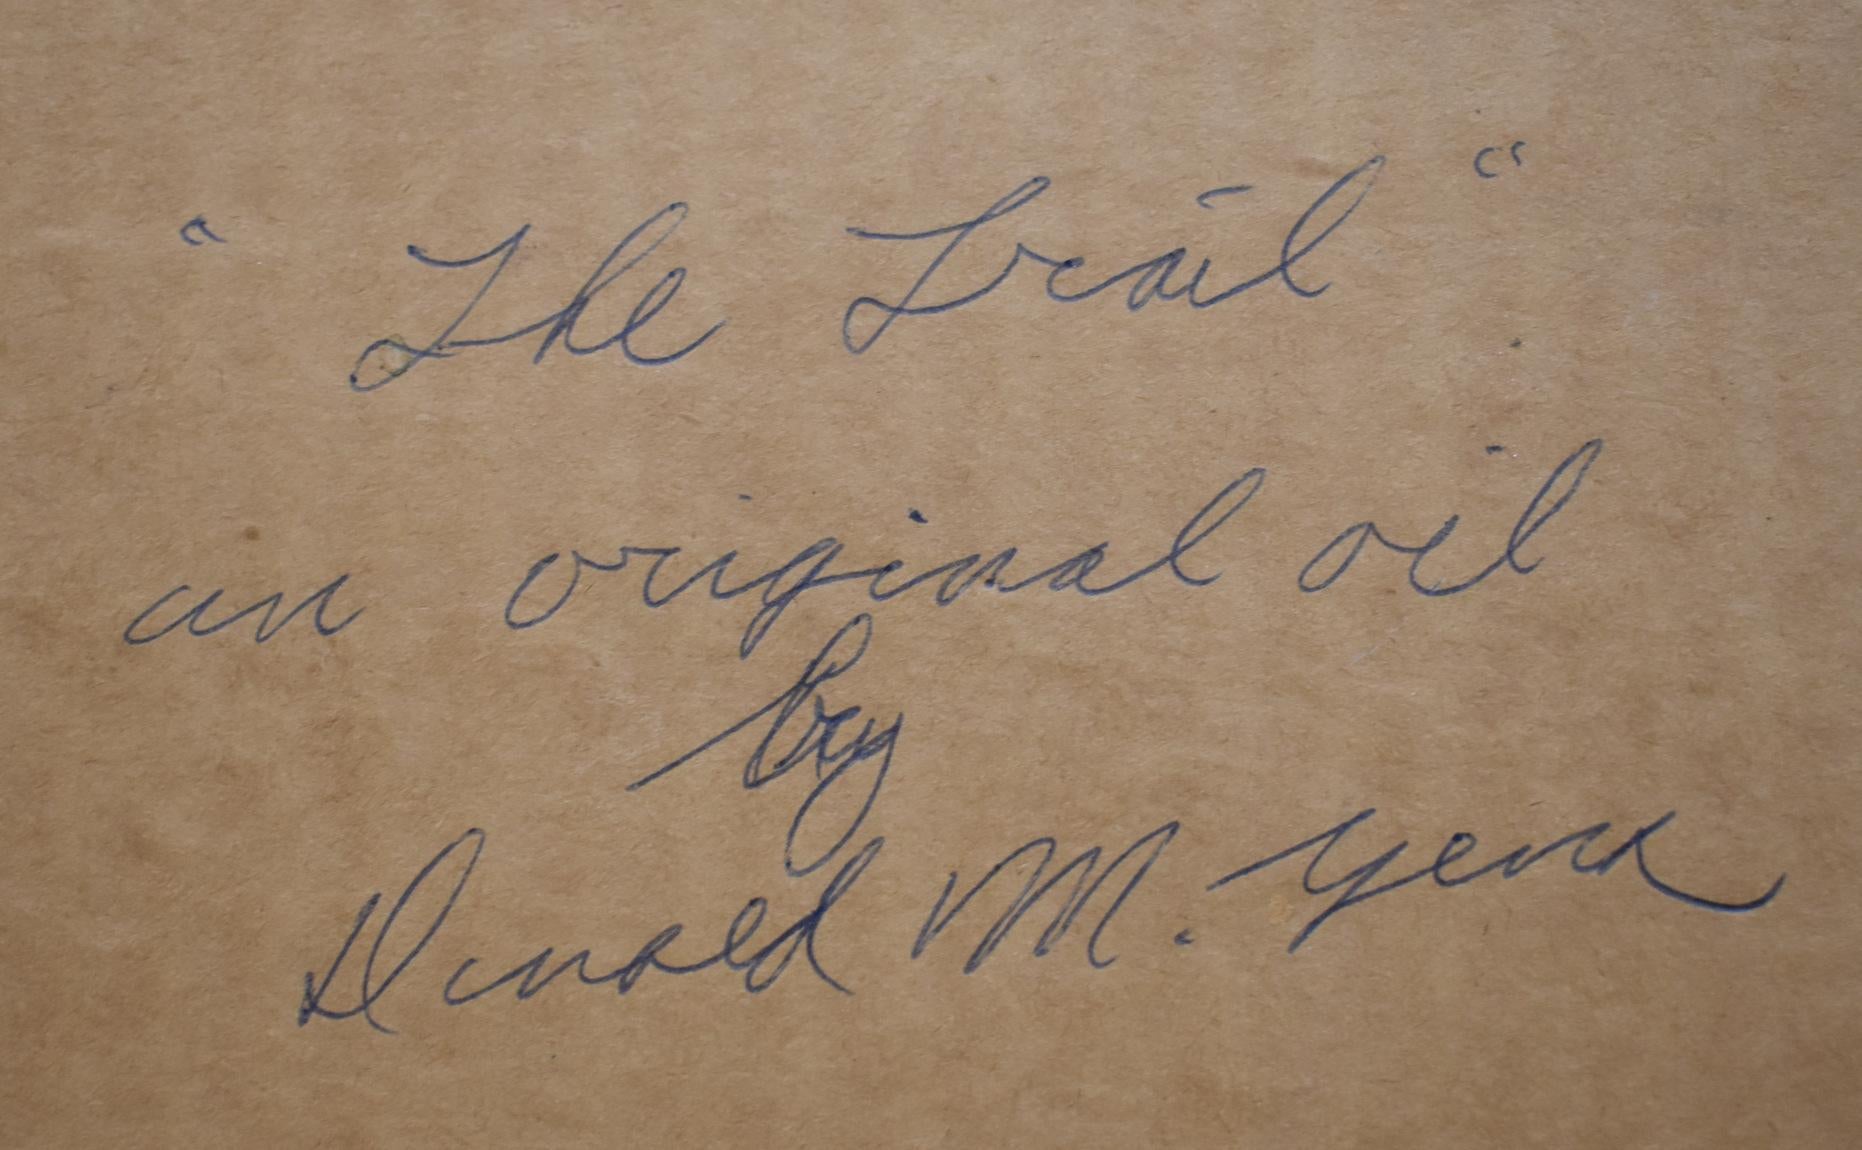 "The Trail"
an original oil
by
Donald M. Yena